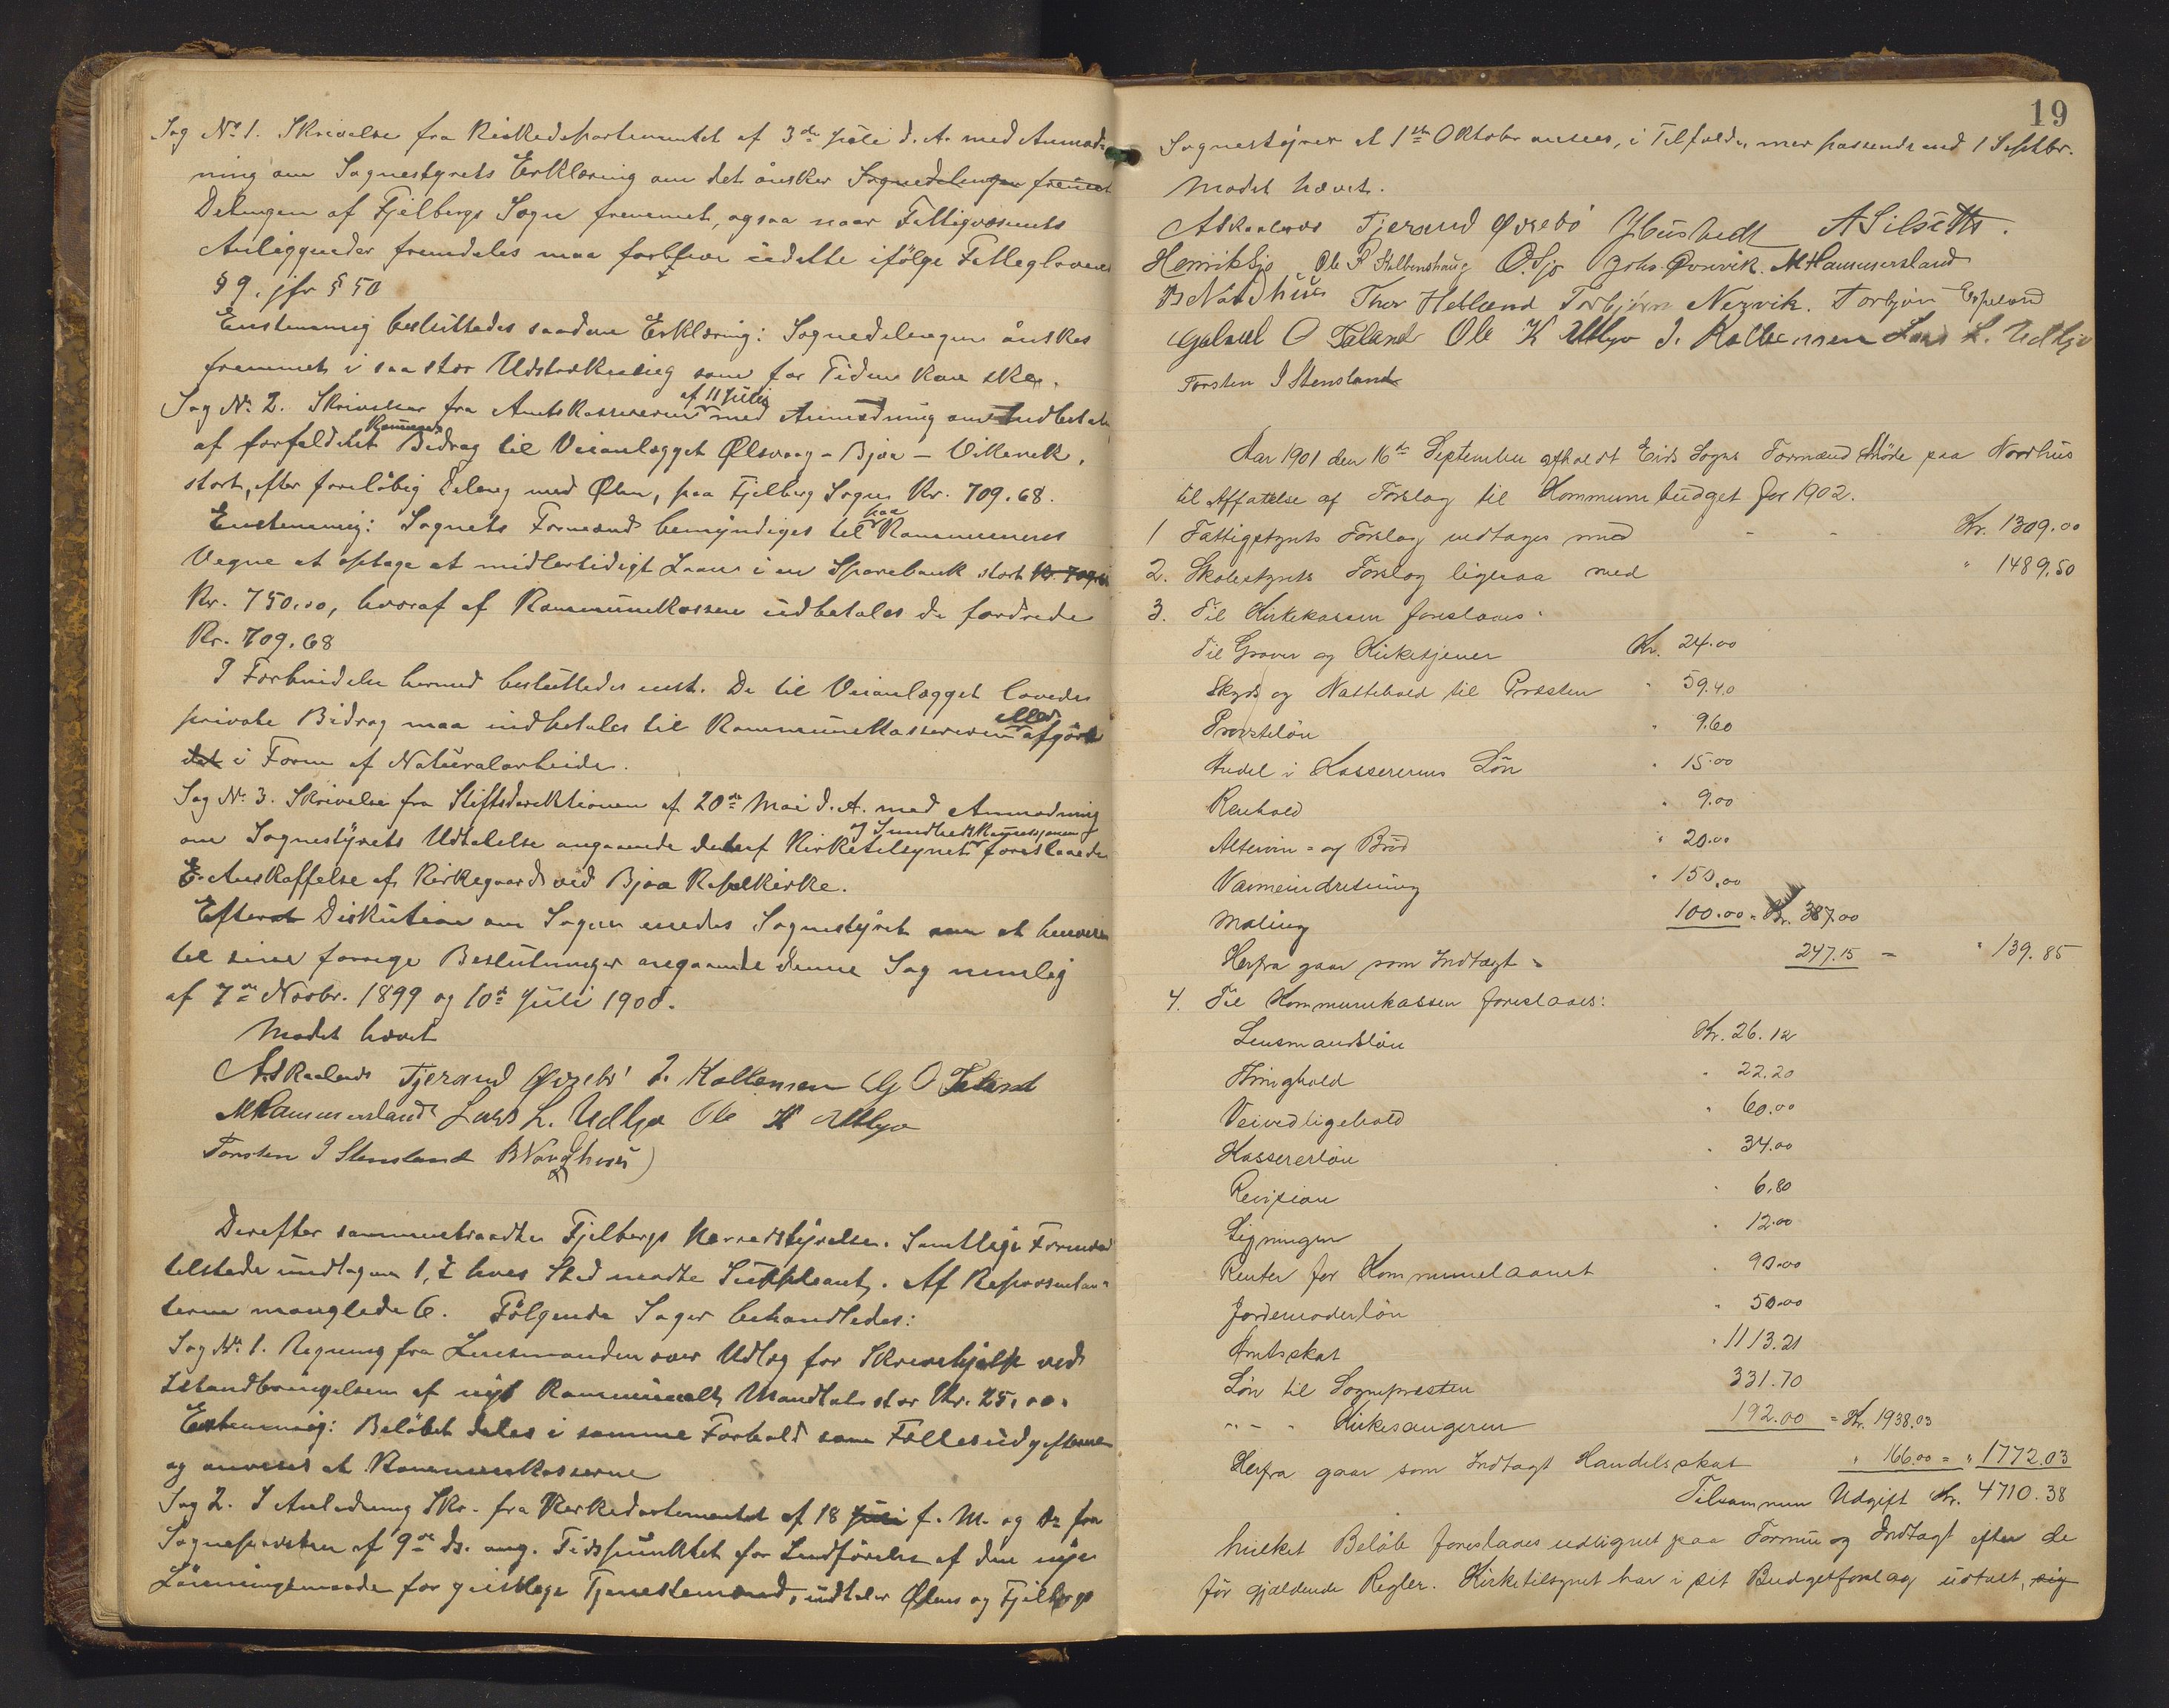 Sag No 1. Skrivelse fra Kirkedepartementet af 3de Juli d. A. med Anmod-
ning om Sognestyrets Erklæring om det ønsker Sognedelingen fremmet
Delingen af Fjelbergs Sogn fremmet, ogsaa naar Fattigvæsenets
Anliggender fremdeles maa forblive udelte ifølge Fattiglovens
§ 9, jfr § 50
Enstemmig besluttedes saadan Erklæring: Sognedelingen ønskes
fremmet i saa stor Udstrækning som for Tiden kan ske.
Sag No 2. Skrivelse fra Amtskassereren af 11 Juli med Anmodning om Indbetal.
af forfaldent Kommunes Bidrag til Veianlægget Ølsvaag - Bjoa - Vikevik,
stort, efter foreløbig Deling med Ølen, paa Fjelberg Sogn Kr. 709.68.
Enstemmig: Sognets Formænd bemyndiges til paa Kommunens
Vegne at optage et midlertidigt Laan i en Sparebank stort
Kr. 750.00, hvoraf af Kommunekassen udbetales de fordrede
Kr. 709.68
I Forbindelse hermed besluttedes enst. De til Veianlægget lovede
private Bidrag maa indbetales til Kommunekassereren eller afgjøres
det i Form af Naturalarbeide.
Sag No 3. Skrivelse fra Stiftsdirektionen af 20de Mai d. A. med Anmodning
om Sognestyrets Udtalelse angaaende det af Kirketilsynet og Sundhedskommissionen foreslaaede
Anskaffelse af Kirkegaard ved Bjoa Kapelkirke.
Efter Diskution om Sagen enedes Sognestyret om at henvise
til sine forrige Beslutninger angaaende denne Sag nemlig
af 7de Novbr. 1899 og 10de Juli 1900.
Mødet hævet
A Skaalnes Tjerand Øvrebø J. Koltensen G O Taland
M Hammersland Lars L. Udbjo Ole K Utbjo
Torsten I Stensland B Nordhus
Derefter sammentraadte Fjelbergs Herredstyrelse. Samtlige Formænd
tilstede undtagen 1, i hvis Sted mødte Suppleant. Af Repræsentan-
terne manglede 6. Følgende Sager behandledes:
Sag No 1. Regning fra Lensmanden over Udlæg for Skrivehjælp ved
Istandbringelsen af nyt Kommunalt Mandtal stor Kr. 25.00.
Enstemmig: Beløbet deles i samme Forhold som Fællesudgifterne
og anvises at Kommunekasserne
Sag 2. I Anledning Skr. fra Kirkedepartementet af 18 f. M. og Do fra
Sognepræsten af 9de ds. ang. Tidspunktet for Indførelse af den nye
Lønningsmaade for geistlige Tjenestemænd, udtaler Ølens og Fjelbergs
19
Sognestyrer at 1ste Oktober ansees, i Tilfælde, mer passende end 1 Septbr.
Mødet hævet.
A Skaalnes Tjerand Øvrebø J Hustvedt A Silseth.
Henrik Sjo Ole P Kolbenshaug O. Sjo Johs. Øvrevik. M Hammersland
B Nordhus Thor Hetland Torbjørn Nervik. Torbjørn Espeland
Gabriel O Taland Ole K Utbjo J. Koltensen Lars L. Udbjo
Torsten I Stensland
Aar 1901 den 16de September afholdt Eids Sogns Formænd Møde paa Nordhus
til Affattelse af Forslag til Kommunebudget for 1902.
1 Fattigstyrets Forslag vedtages med - - Kr. 1309.00
2. Skolestyrets Forslag ligesaa med " 1489.50
3. Til Kirkekassen foreslaaes:
Til Graver og Kirketjener Kr. 24.00
Skyds og Nattehold til Præsten " 59.40
Provsteløn " 9.60
Andel i Kassererens Løn " 15.00
Renhold " 9.00
Altervin- og Brød " 20.00
Varmeindretning " 150.00
Maling 100.00 = Kr. 387.00
Herfra gaar som Indtægt = 247.15 - " 139.85
4. Til Kommunekassen foreslaaes:
Lensmandsløn Kr. 26.12
Thinghold " 22.20
Veivedligehold " 60.00
Kassererløn " 34.00
Revision " 6.80
Ligningen " 12.00
Renter for Kommunelaanet " 90.00
Jordemoderløn " 50.00
Amtsskat " 1113.21
Løn til Sognepræsten 331.70
" - " Kirkesangeren 192.00 = Kr. 1938.03
Herfra gaar som Indtægt Handelsskat " 166.00 = " 1772.03
Tilsammen Udgift Kr. 4710.38
hvilket Beløb foreslaaes udlignet paa Formue og Indtægt efter de
før gjældende Regler. Kirketilsynet har i sit Budgetforslag udtalt, sig